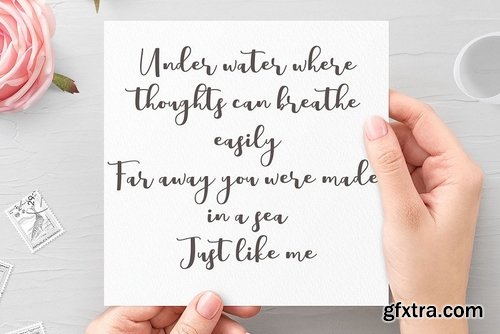 Under water where
thoughts can breathe
easily
Far away you were made
in a sea
Just like me
gfxtra.com